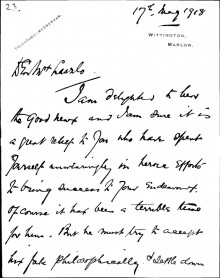 23.
17th May 1918
TELEGRAMS, MEDMENHAM.
WITTINGTON,
MARLOW.
Dear Mrs Laszlo
I am delighted to hear
the Good news and I am sure it is
a great relief to you who have spent
yourself unwaveringly in heroic efforts
to bring success to your Endeavour.
Of course it has been a terrible time
for him. But he must try to accept
his fate philosophically & settle down